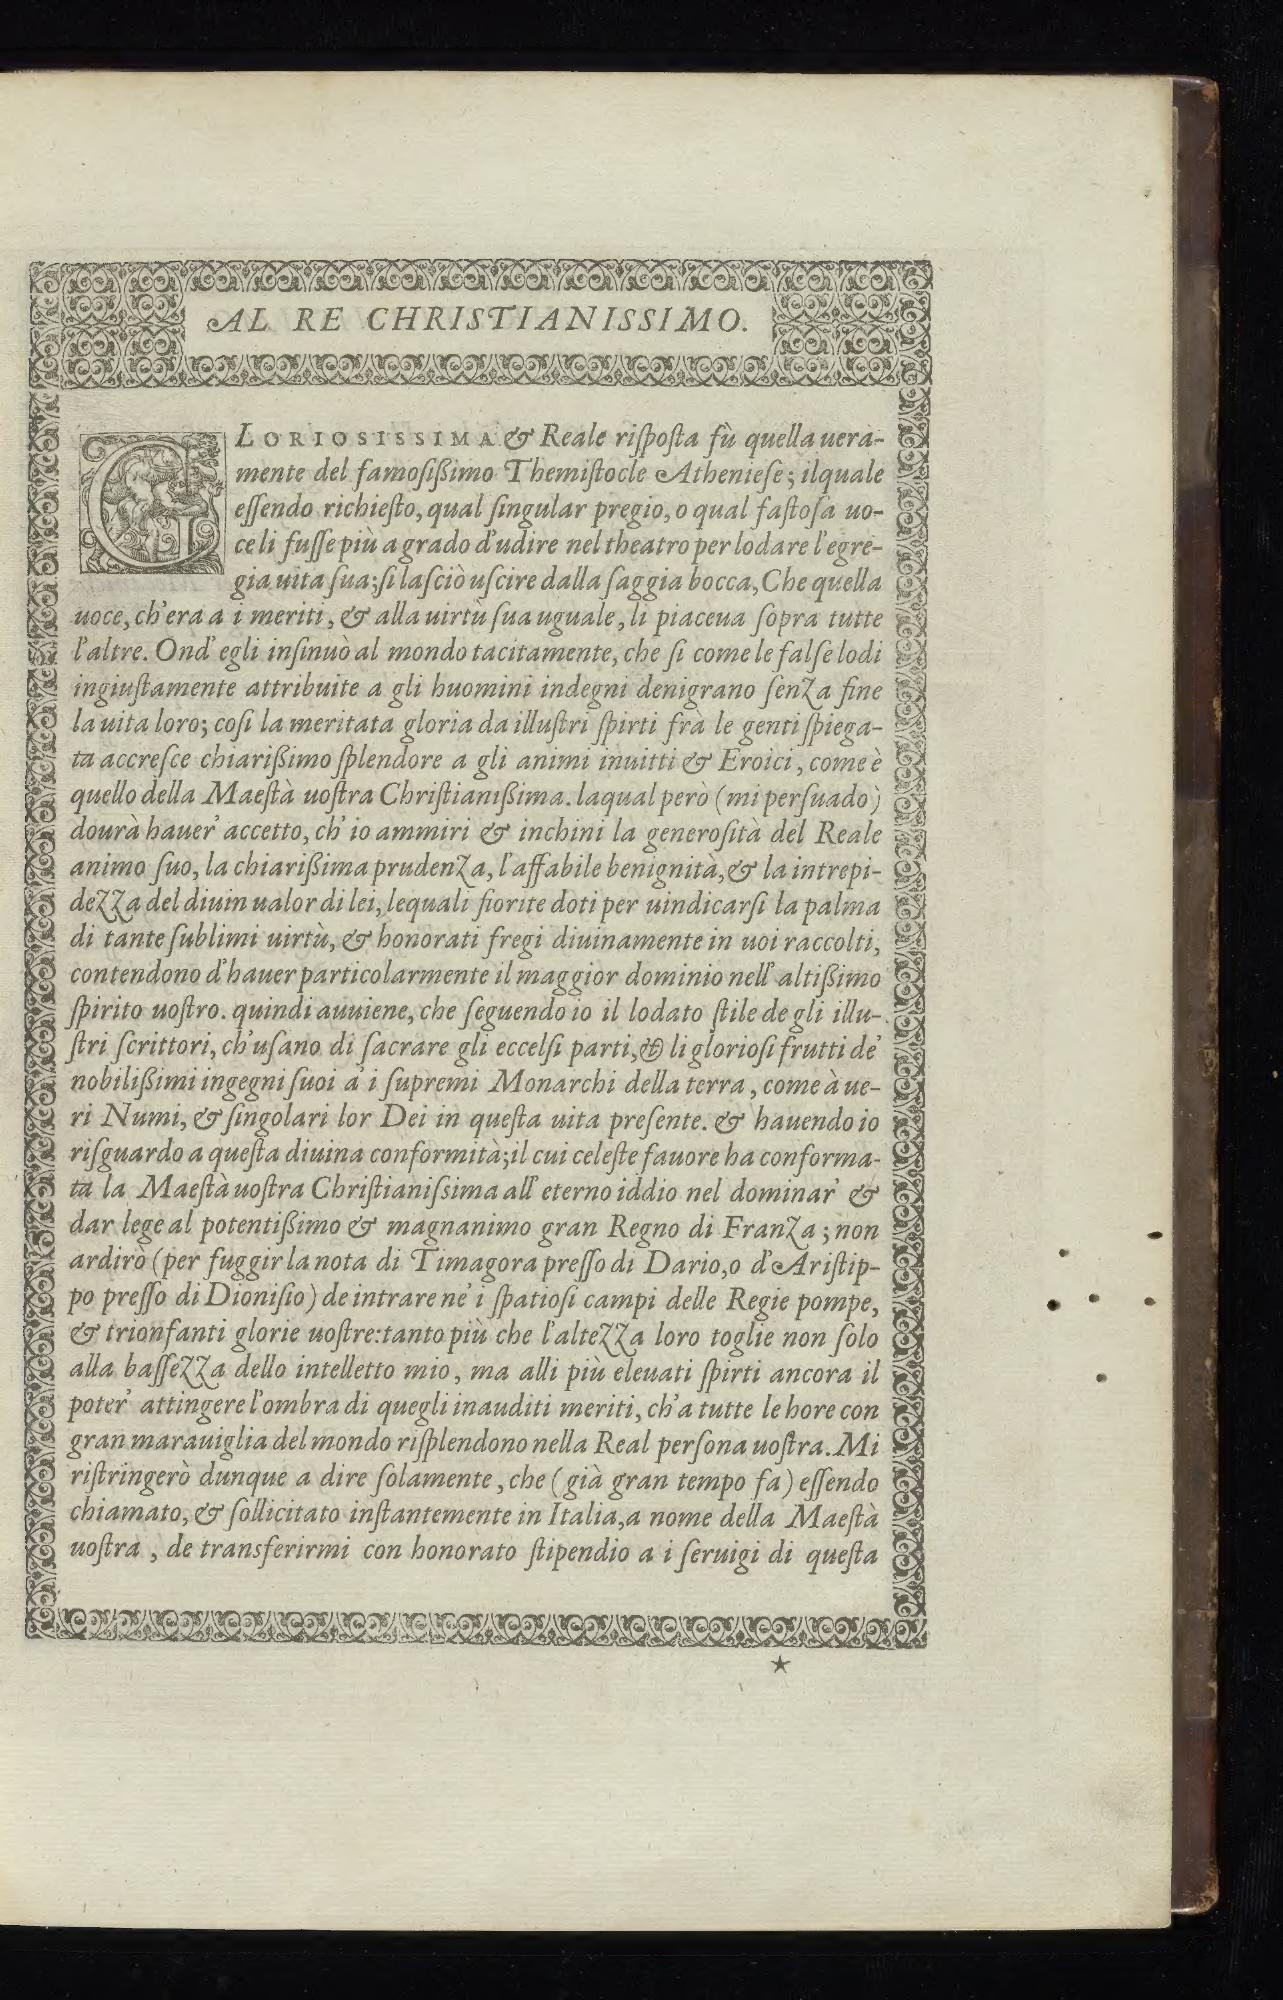 AL RE CHRISTIANISSIMO.
GLORIOSISSIMA & Reale riſpoſta fù quella uera-
mente del famoſißimo Themiſtocle Athenieſe; ilquale
eſſendo richieſto, qual ſingular pregio, o qual faſtoſa uo-
ce li fuſſe più a grado d'udire nel theatro per lodare l'egre-
gia uita ſua; ſi laſciò uſcire dalla ſaggia bocca, Che quella
uoce, ch'era a i meriti, & alla uirtù ſua uguale, li piaceua ſopra tutte
l'altre. Ond' egli inſinuò al mondo tacitamente, che ſi come le falſe lodi
ingiuſtamente attribuite a gli huomini indegni denigrano ſenza fine
la uita loro; coſi la meritata gloria da illuſtri ſpirti frà le genti ſpiega-
ta accreſce chiarißimo ſplendore a gli animi inuitti & Eroici, come è
quello della Maeſtà uoſtra Chriſtianißima. laqual però (mi perſuado)
dourà hauer' accetto, ch' io ammiri & inchini la generoſità del Reale
animo ſuo, la chiarißima prudenza, l'affabile benignità, & la intrepi-
dezza del diuin ualor di lei, lequali fiorite doti per uindicarſi la palma
di tante ſublimi uirtù, & honorati fregi diuinamente in uoi raccolti,
contendono d'hauer particolarmente il maggior dominio nell' altißimo
ſpirito uoſtro. quindi auuiene, che ſeguendo io il lodato ſtile de gli illu-
ſtri ſcrittori, ch'uſano di ſacrare gli eccelſi parti, & li glorioſi frutti de'
nobilißimi ingegni ſuoi a' i ſupremi Monarchi della terra, come à ue-
ri Numi, & ſingolari lor Dei in queſta uita preſente. & hauendo io
riſguardo a queſta diuina conformità; il cui celeſte fauore ha conforma-
ta la Maeſtà uoſtra Chriſtianiſsima all' eterno iddio nel dominar' &
dar lege al potentißimo & magnanimo gran Regno di Franza; non
ardirò (per fuggir la nota di Timagora preſſo di Dario, o d'Ariſtip-
po preſſo di Dioniſio) de intrare ne' i ſpatioſi campi delle Regie pompe,
& trionfanti glorie uoſtre: tanto più che l'altezza loro toglie non ſolo
alla baſſezza dello intelletto mio, ma alli più eleuati ſpirti ancora il
poter' attingere l'ombra di quegli inauditi meriti, ch'a tutte le hore con
gran marauiglia del mondo riſplendono nella Real perſona uoſtra. Mi
riſtringerò dunque a dire ſolamente, che (già gran tempo fa) eſſendo
chiamato, & ſollicitato inſtantemente in Italia, a nome della Maeſtà
uoſtra, de transferirmi con honorato ſtipendio a i ſeruigi di queſta
★